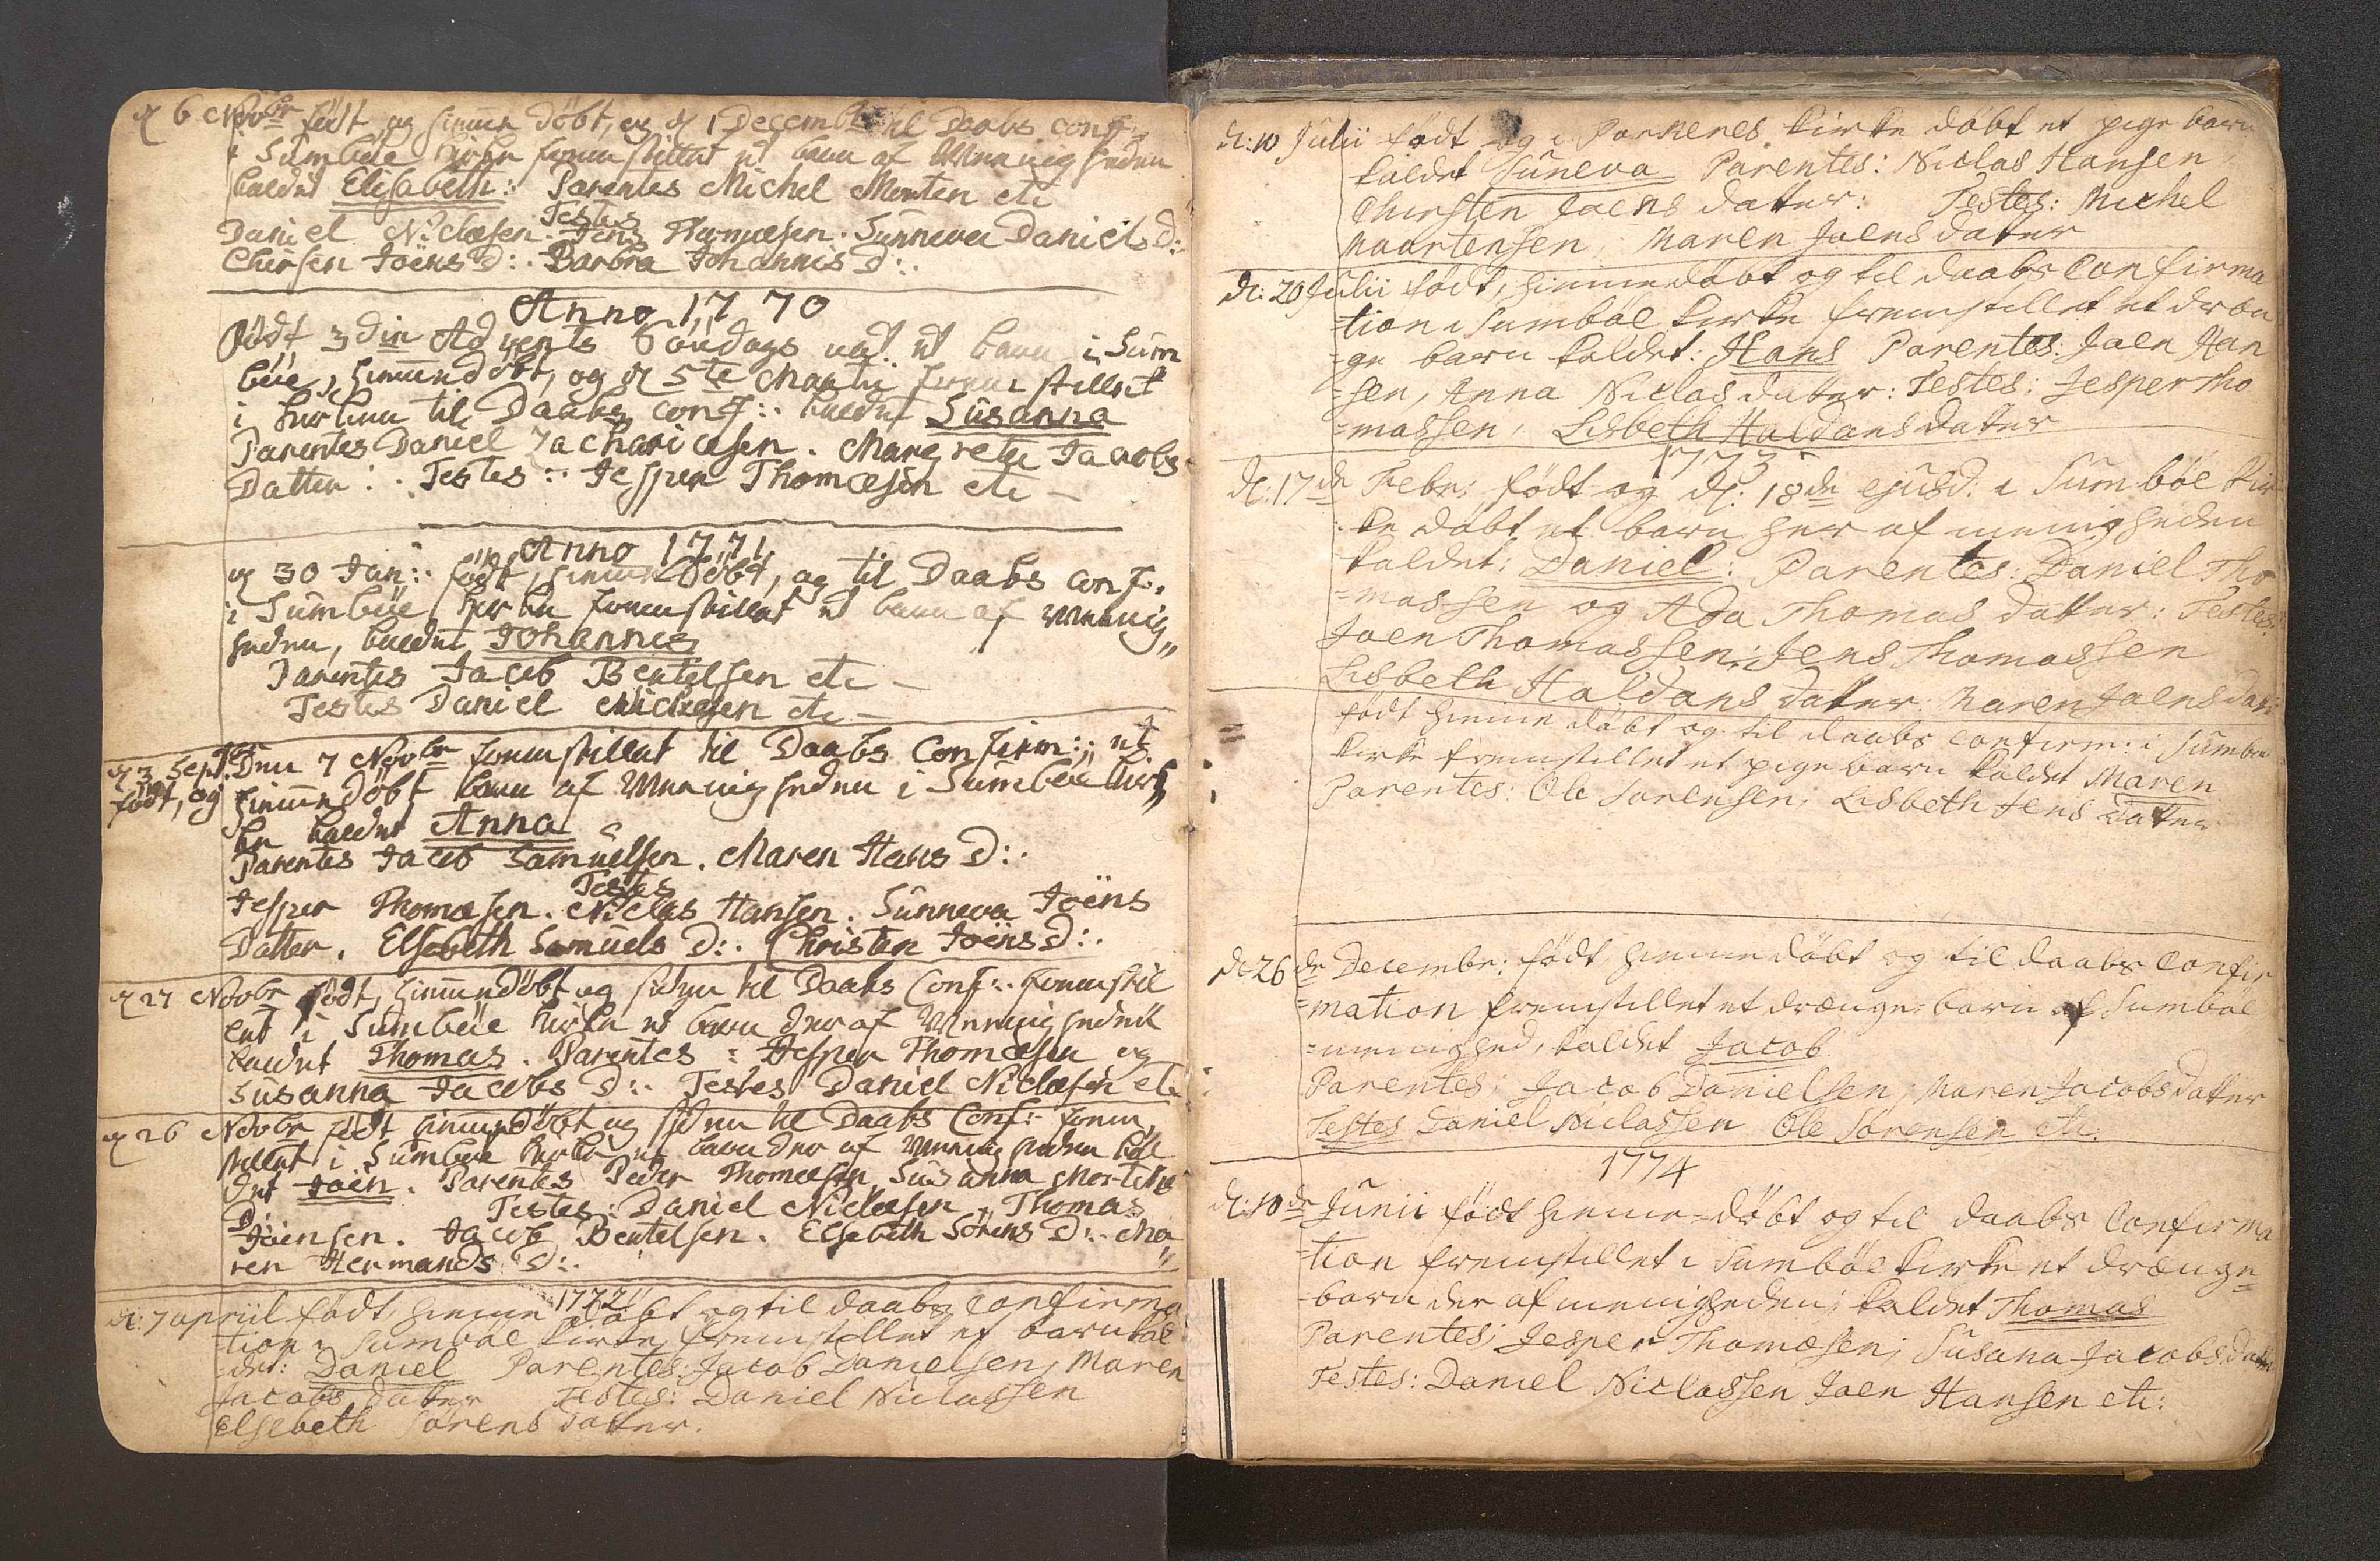 d 6 Novbr født og hiemme Döbt, og d 1 Decembr til Daabs conf:
i Sumbøe Kirke fremstillet et barn af Meenigheden
kaldet Elisabeth: Parentes Michel Morten etc
Testes
Daniel Niclæsen. Jens Thomæsen. Sunneva Daniels D:
Chersen Joëns D:. Barbra Johannis D:.
Anno 1770
Født 3die Advents Söndags nat et barn i Sum
böe, hiemmedöbt, og d 5te Martii fremstillet
i Kirken til Daabs conf:. kaldet Susanna
Parentes Daniel Zachariæsen. Margrete Jacobs
Datter:. Testes:. Jesper Thomæsen etc
Anno 1771
d 30 Jan:. født, hiemme Döbt, og til Daabs conf:.
i Sumböe kirke fremstillet et barn af Meenig„
heden, kaldet Johannes
Parentes Jacob Bentelsen etc
Testes Daniel Niclæsen etc
d 3 Septbr Den 7 Novbr fremstillet til Daabs Confirm:. et
født, og hiemmedöbt barn af Meenigheden i Sumböe Kir
ke kaldet Anna
Parentes Jacob Samuelsen. Maren Hans D:.
Testes
Jesper Thomæsen. Niclas Hansen. Sunneva Joëns
Datter. Elsebeth Samuels D:. Christen Joëns D:.
d 27 Novbr født, hiemmedöbt og siden til Daabs Conf:. fremstil
let i Sumböe kirke et barn der af Meenigheden
kaldet Thomas. Parentes: Jesper Thomæsen og
Susanna Jacobs D:. Testes Daniel Niclæsen etc
d 26 Novbr født hiemmedöbt og siden til Daabs Conf:. frem„
stillet i Sumböe kirke et barn der af Meenigheden kal
det Joën. Parentes Peder Thomæsen, Susanna Mortens
D:. Testes: Daniel Niclæsen, Thomas
Joensen. Jacob Bentelsen. Elsebeth Sörens D:. Ma„
ren Hermands D:.
1772
d: 7 april født, hiemme döbt og til daabs confirma
tion i Sumböe kirke, fremstillet et barn kal
det: Daniel Parentes: Jacob Danielsen, Maren
Jacobs datter Testes: Daniel Niclassen
Elsebeth Sörens datter.
d: 10 Julii født og i Porkeres kirke döbt et pige barn
kaldet Suneva Parentes: Niclas Hansen
Chirsten Joens datter: Testes: Michel
Maartensen Maren Joensdatter
d: 20 Julii født, hiemmedöbt og til daabs Confirma
=tion i Sumböe kirke fremstillet et dræn
=ge barn kaldet: Hans Parentes: Joen Han
=sen, Anna Niclasdatter: Testes: Jesper Tho
=massen, Lisbeth Haldans datter
1773
d: 17de Febr: født og d: 18de ejusd: i Sumböe Kir
ke döbt et barn her af menigheden
kaldet: Daniel: Parentes: Daniel Tho
=massen og Ada Thomas datter: Testes:
Joen Thomassen; Jens Thomassen
Lisbeth Haldans datter. Maren Joensdatt:
født hiemme döbt og til daabs confirm: i Sumbøe
kirke fremstillet et pigebarn kaldet Maren
Parentes: Ole Sorensen, Lisbeth Jens datter
d: 26de Decembr: født, hiemmedöbt og til daabs Confir
=mation fremstillet et drænge=barn af Sumböe
=menighed, kaldet Jacob
Parentes; Jacob Danielsen; Maren Jacobsdatter
Testes Daniel Niclassen Ole Sörensen etc.
1774
d: 10de Junii født hiemme=döbt og til daabs Confirma
=tion fremstillet i Sumböe kirke et drænge=
=barn der af menigheden; kaldet Thomas
Parentes; Jesper Thomæsen; Susana Jacobsdatter
Testes: Daniel Niclassen Joen Hansen etc: